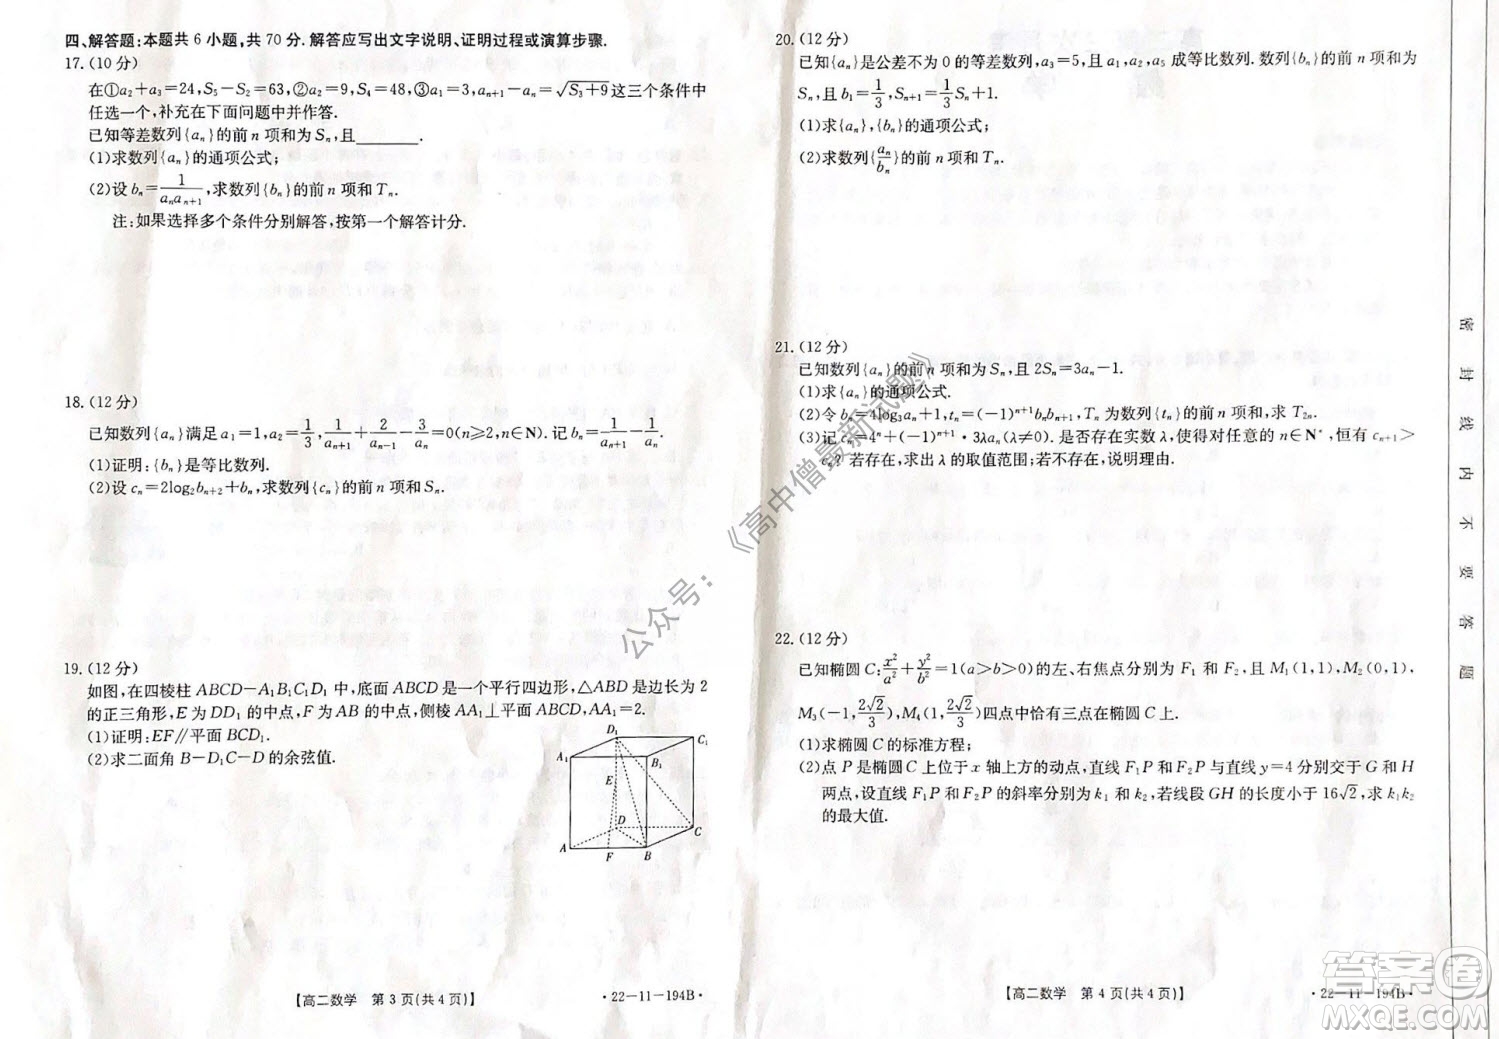 四、解答题:本题共 6 小题,共 70 分.解答应写出文字说明、证明过程或演算步骤.
17.(10 分)
在①a₂+a₃=24,S₅-S₂=63,②a₂=9,S₄=48,③a₁=3,aₙ₊₁-aₙ=√(S₃+9)这三个条件中
任选一个,补充在下面问题中并作答.
已知等差数列{aₙ}的前 n 项和为 Sₙ,且________.
(1)求数列{aₙ}的通项公式;
(2)设 bₙ=1/(aₙaₙ₊₁),求数列{bₙ}的前 n 项和 Tₙ.
注:如果选择多个条件分别解答,按第一个解答计分.
18.(12 分)
已知数列{aₙ}满足 a₁=1,a₂=1/3,1/aₙ₊₁+2/aₙ₋₁-3/aₙ=0(n≥2,n∈N).记 bₙ=1/aₙ₊₁-1/aₙ.
(1)证明:{bₙ}是等比数列.
(2)设 cₙ=2log₂bₙ₊₂+bₙ,求数列{cₙ}的前 n 项和 Sₙ.
19.(12 分)
如图,在四棱柱 ABCD-A₁B₁C₁D₁ 中,底面 ABCD 是一个平行四边形,△ABD 是边长为 2
的正三角形,E 为 DD₁ 的中点,F 为 AB 的中点,侧棱 AA₁⊥平面 ABCD,AA₁=2.
(1)证明:EF∥平面 BCD₁.
(2)求二面角 B-D₁C-D 的余弦值.
D₁
C₁
A₁
B₁
E
D
C
A
F
B
【高二数学 第 3 页(共 4 页)】
·22-11-194B·
20.(12 分)
已知{aₙ}是公差不为 0 的等差数列,a₃=5,且 a₁,a₂,a₅ 成等比数列.数列{bₙ}的前 n 项和为
Sₙ,且 b₁=1/3,Sₙ₊₁=1/3Sₙ+1.
(1)求{aₙ},{bₙ}的通项公式;
(2)求数列{aₙ/bₙ}的前 n 项和 Tₙ.
21.(12 分)
已知数列{aₙ}的前 n 项和为 Sₙ,且 2Sₙ=3aₙ-1.
(1)求{aₙ}的通项公式.
(2)令 bₙ=4log₃aₙ+1,tₙ=(-1)ⁿ⁺¹bₙbₙ₊₁,Tₙ 为数列{tₙ}的前 n 项和,求 T₂ₙ.
(3)记 cₙ=4ⁿ+(-1)ⁿ⁺¹·3λaₙ(λ≠0).是否存在实数 λ,使得对任意的 n∈N*,恒有 cₙ₊₁>
cₙ? 若存在,求出 λ 的取值范围;若不存在,说明理由.
22.(12 分)
已知椭圆 C:x²/a²+y²/b²=1(a>b>0)的左、右焦点分别为 F₁ 和 F₂,且 M₁(1,1),M₂(0,1),
M₃(-1,2√2/3),M₄(1,2√2/3)四点中恰有三点在椭圆 C 上.
(1)求椭圆 C 的标准方程;
(2)点 P 是椭圆 C 上位于 x 轴上方的动点,直线 F₁P 和 F₂P 与直线 y=4 分别交于 G 和 H
两点,设直线 F₁P 和 F₂P 的斜率分别为 k₁ 和 k₂,若线段 GH 的长度小于 16√2,求 k₁k₂
的最大值.
【高二数学 第 4 页(共 4 页)】
·22-11-194B·
密封线内不要答题
公众号:《高中僧最新试题》
答案圈
MXQE.COM